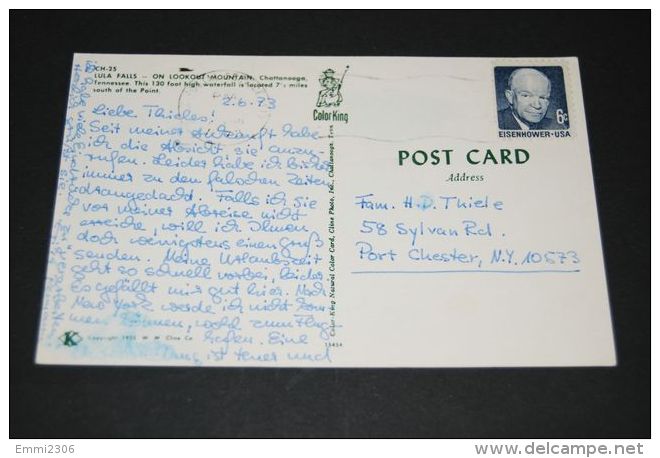 CH-25
LULA FALLS — ON LOOKOUT MOUNTAIN, Chattanooga,
Tennessee. This 130 foot high waterfall is located 7½ miles
south of the Point.
2.6.73
Liebe Thieles!
Seit meiner Ankunft habe
ich die Absicht sie anzu-
rufen. Leider habe ich bisher
immer zu den falschen Zeiten
drangedacht. Falls ich Sie
vor meiner Abreise nicht
erreiche, will ich Ihnen
doch wenigstens einen Gruß
senden. Meine Urlaubszeit
geht so schnell vorbei, leider.
Es gefällt mir gut hier. Nach
New York werde ich nicht kom-
men können, wohl zum Flug-
hafen. Eine
ist teuer und
Color King
Color-King Natural Color Card, Cline Photo, Inc., Chattanooga, Tenn.
K
Copyright 1955 W. M. Cline Co.
15454
6c
EISENHOWER·USA
POST CARD
Address
Fam. H.D. Thiele
58 Sylvan Rd.
Port Chester, N.Y. 10573
Emmi2306
delcampe.net